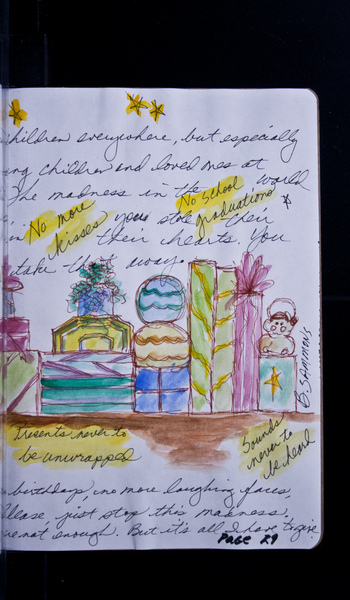 children everywhere, but especially
ing children and loved ones at
The madness in the world
No more
kisses
No School
graduations
you stole their
in their hearts. You
take that away.
B SAMMONS
Presents never to
be unwrapped
Sounds
never to
be heard
birthdays, no more laughing faces,
Please just stop this madness.
are not enough. But it's all I have to give
Page 29